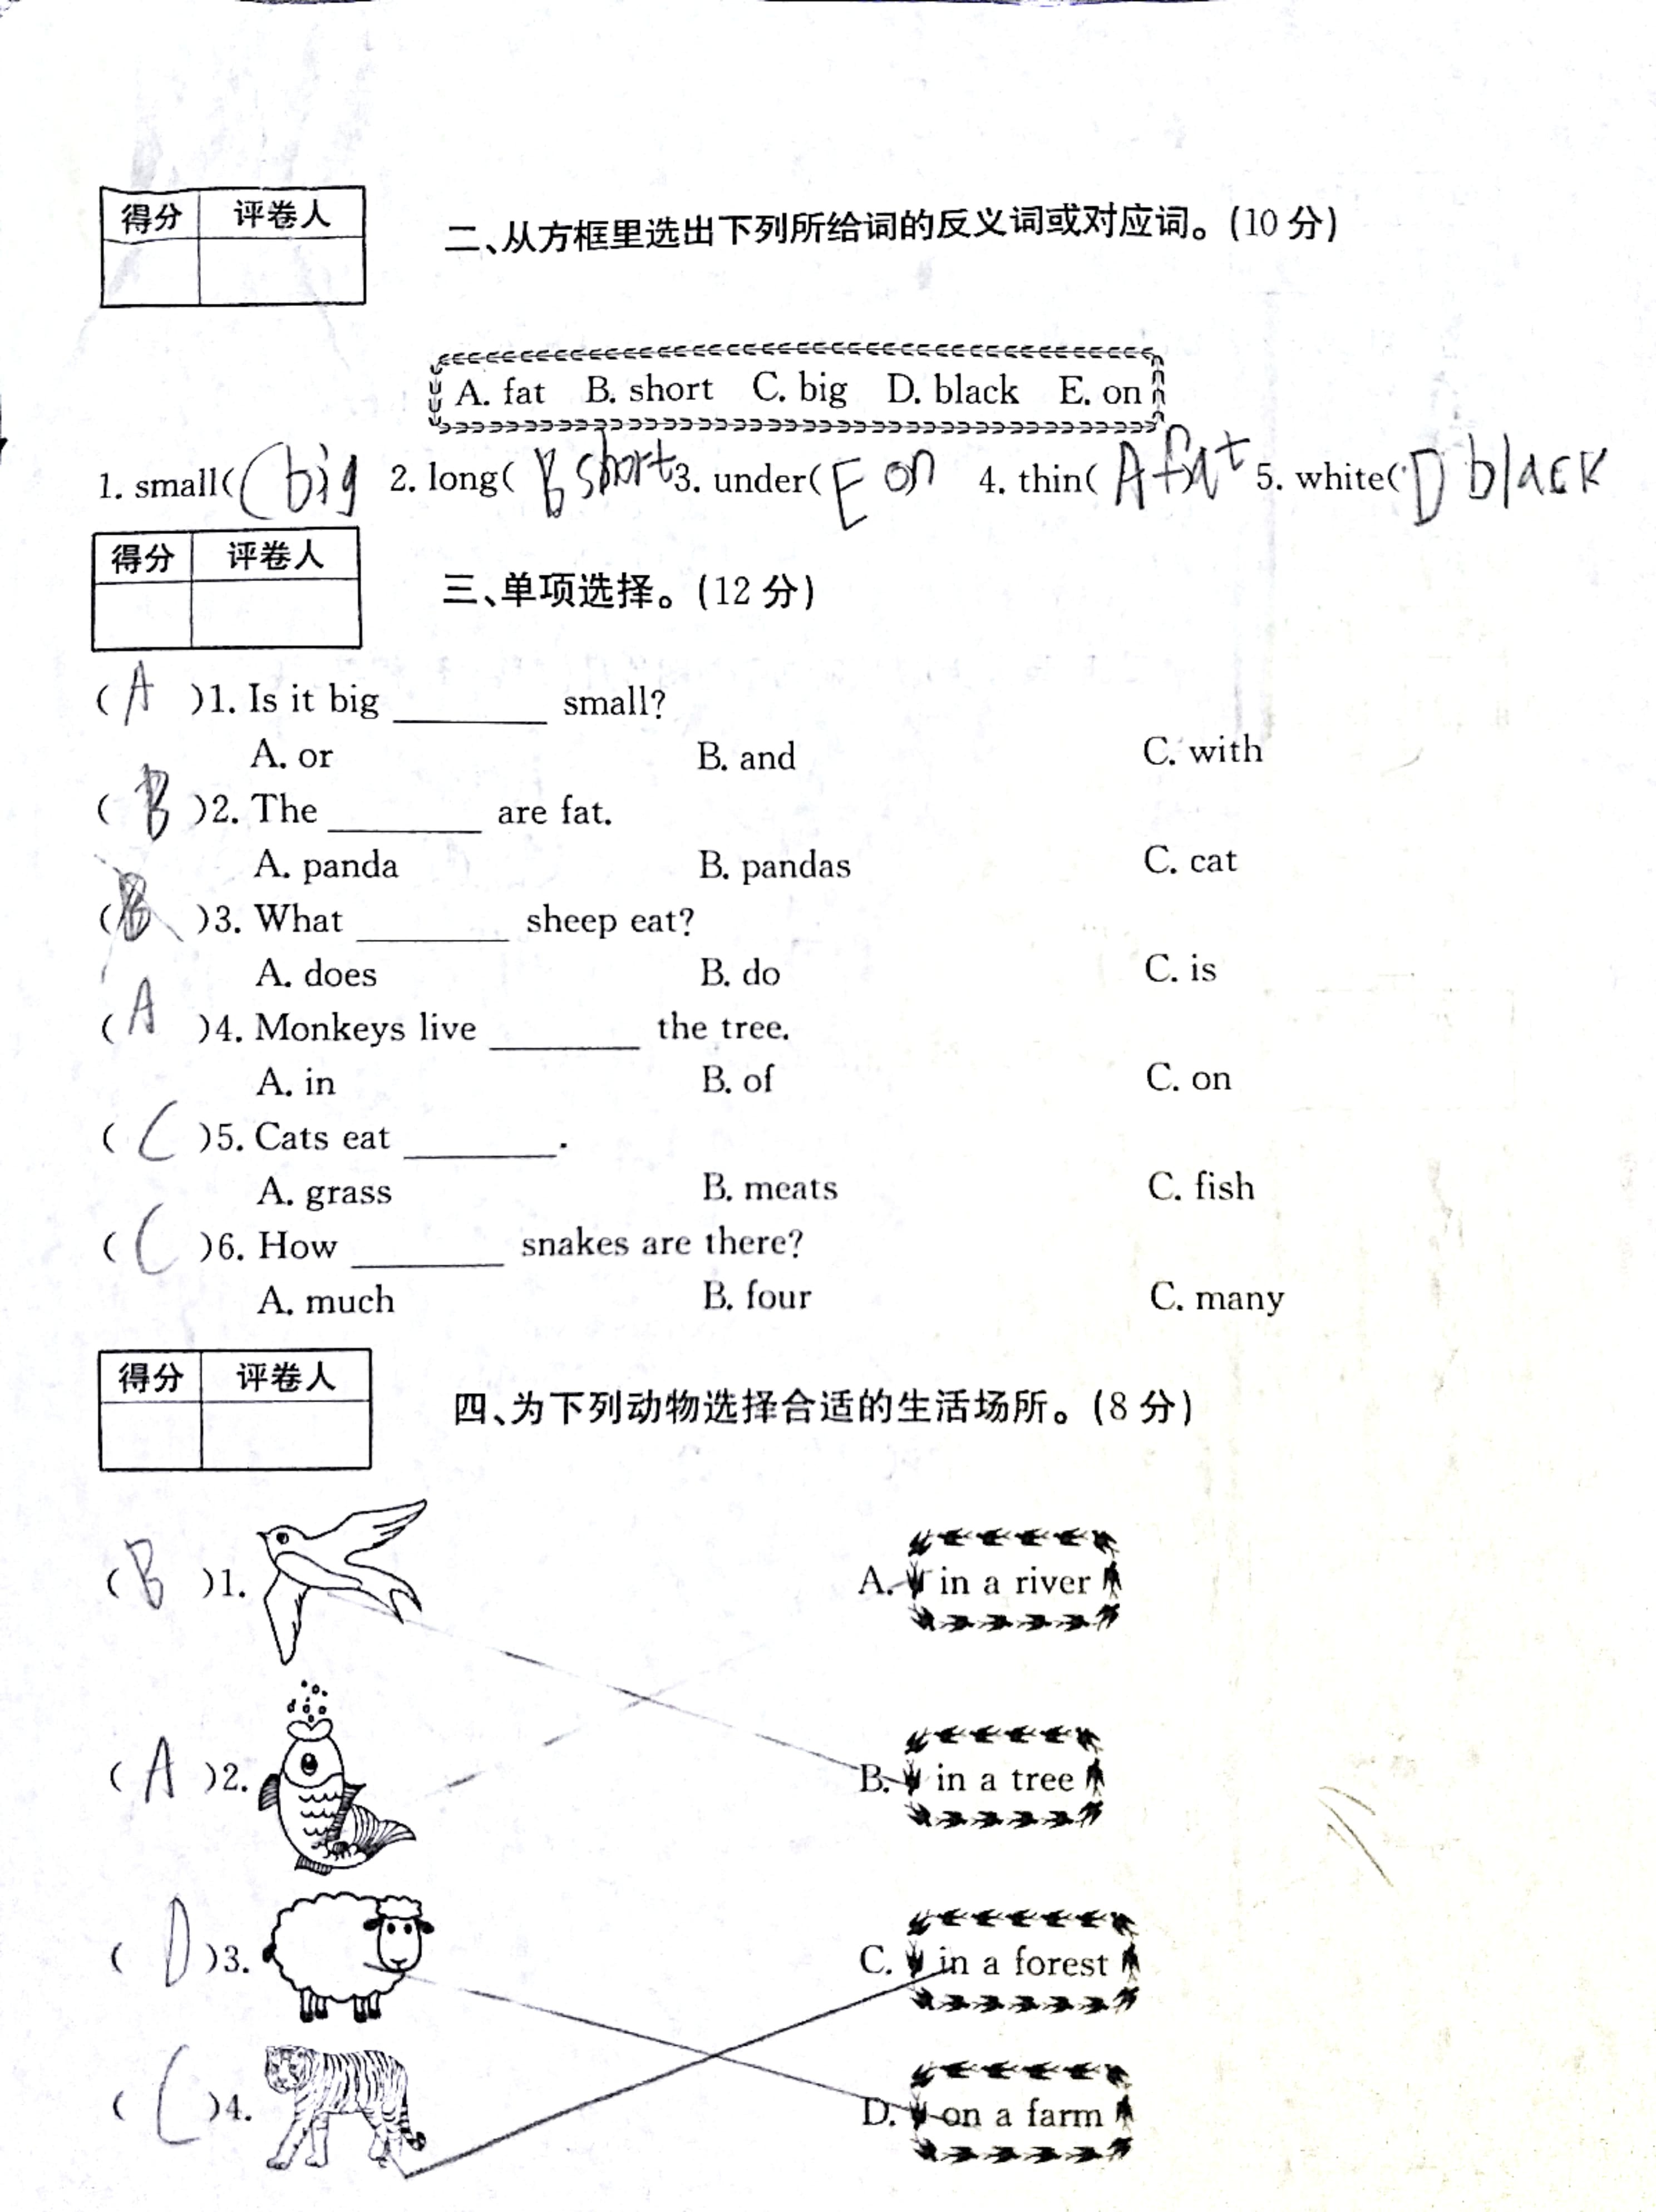 得分 评卷人
二、从方框里选出下列所给词的反义词或对应词。(10 分)
A. fat B. short C. big D. black E. on
1. small( C big 2. long( B short 3. under( E on 4. thin( A fat 5. white( D black
得分 评卷人
三、单项选择。(12 分)
( A )1. Is it big ________ small?
A. or B. and C. with
( B )2. The ________ are fat.
A. panda B. pandas C. cat
( B )3. What ________ sheep eat?
A. does B. do C. is
( A )4. Monkeys live ________ the tree.
A. in B. of C. on
( C )5. Cats eat ________.
A. grass B. meats C. fish
( C )6. How ________ snakes are there?
A. much B. four C. many
得分 评卷人
四、为下列动物选择合适的生活场所。(8 分)
( B )1. A. in a river
( A )2. B. in a tree
( D )3. C. in a forest
( C )4. D. on a farm